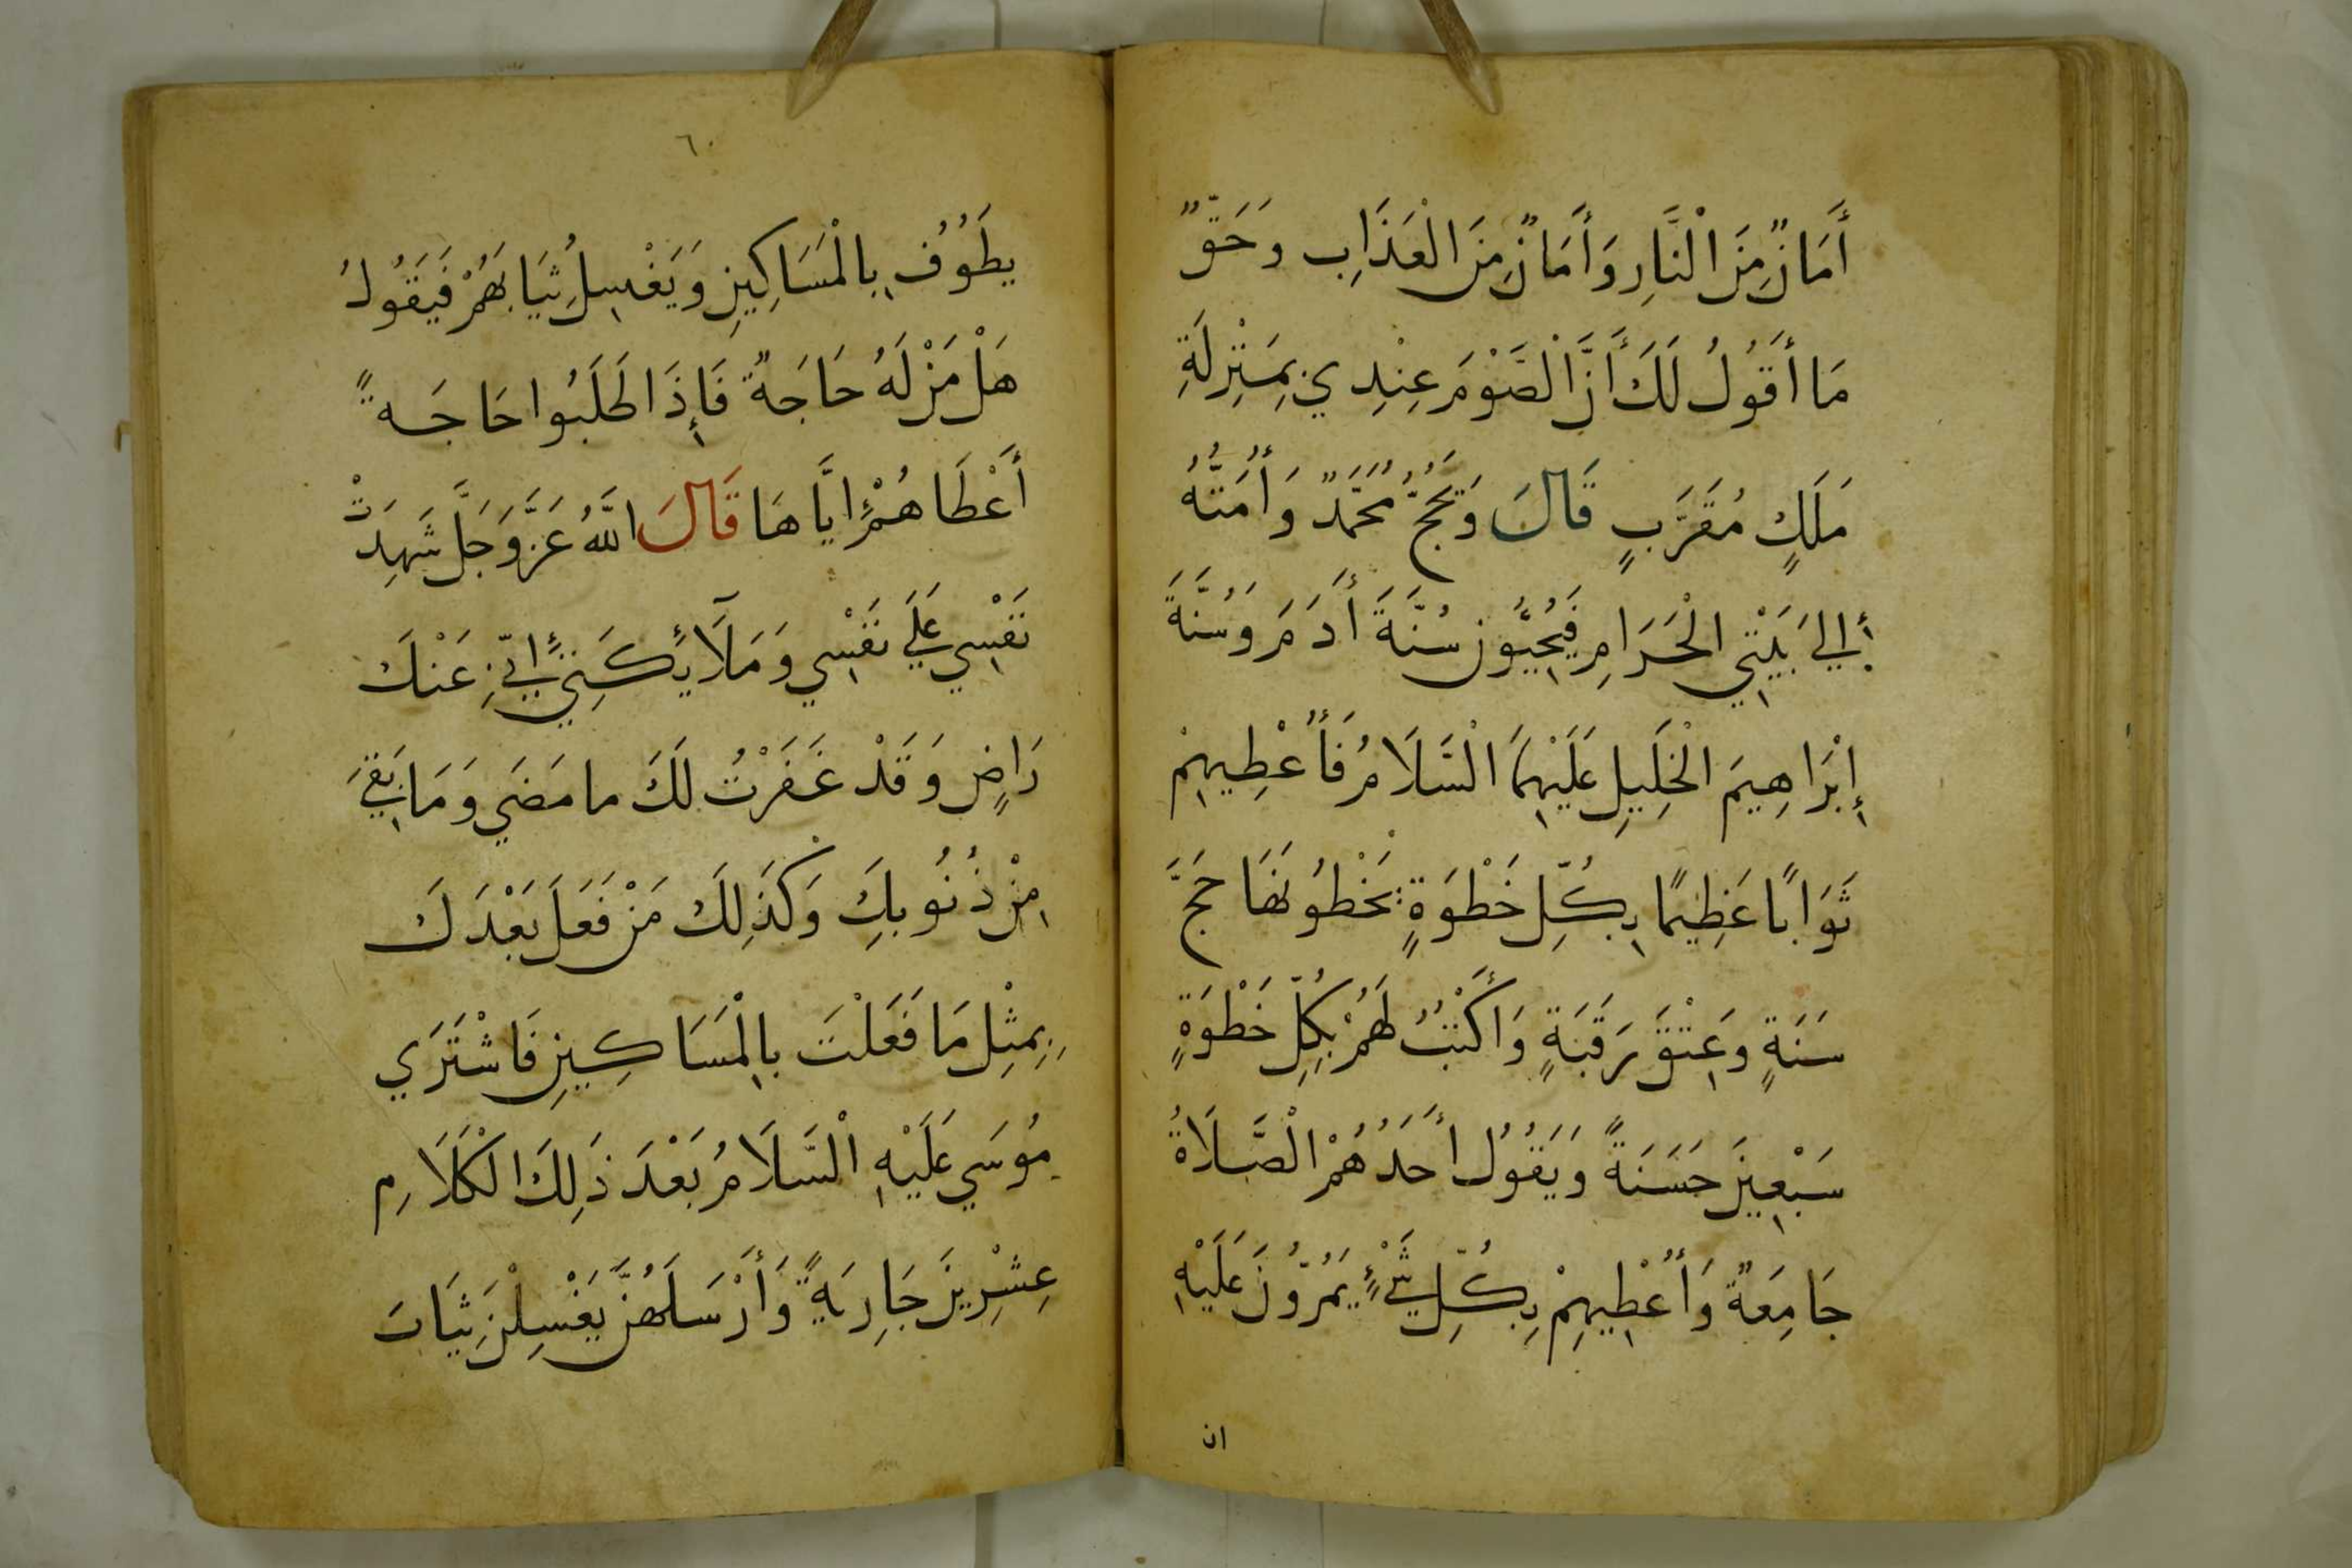 أَمَانٌ مِنَ الْنَّارِ وَأَمَانٌ مِنَ الْعَذَابِ وَحَقٌّ
مَا أَقُولُ لَكَ أَنَّ الْصَّوْمَ عِنْدِي بِمَنْزِلَةِ
مَلَكٍ مُقَرَّبٍ قَالَ وَيَحُجُّ مُحَمَّدٌ وَأُمَّتُهُ
إِلي بَيْتِي الْحَرَامِ فَيُحِيُّونَ سُنَّةَ أَدَمَ وَسُنَّةَ
إِبْرَاهِيمَ الْخَلِيلِ عَلَيْهِمَا الْسَّلَامُ فَأُعْطِيهِمْ
ثَوَابًا عَظِيمًا بِكُلِّ خَطْوَةٍ يَخْطُونَهَا حَجَّ
سَنَةٍ وَعِتْقَ رَقَبَةٍ وَأَكْتُبُ لَهُمْ بِكُلِّ خَطْوَةٍ
سَبْعِينَ حَسَنَةً وَيَقُولُ أَحَدُهُمْ الْصَّلَاةُ
جَامِعَةٌ وَأُعْطِيهِمْ بِكُلِّ شَيْءٍ يَمُرُّونَ عَلَيْهِ
ان
٦٠
يَطُوفُ بِالْمَسَاكِينِ وَيَغْسِلُ ثِيَابَهُمْ فَيَقُولُ
هَلْ مَنْ لَهُ حَاجَةٌ فَإِذَا طَلَبُوا حَاجَةً
أَعْطَاهُمْ إِيَّاهَا قَالَ اللَّهُ عَزَّ وَجَلَّ شَهِدَتْ
نَفْسِي عَلَي نَفْسِي وَمَلَآئِكَتِي إِنِّي عَنْكَ
رَاضٍ وَقَدْ غَفَرْتُ لَكَ مَا مَضَي وَمَا بَقِيَ
مِنْ ذُنُوبِكَ وَكَذَلِكَ مَنْ فَعَلَ بَعْدَكَ
بِمِثْلِ مَا فَعَلْتَ بِالْمَسَاكِينِ فَاشْتَرَي
مُوسَي عَلَيْهِ الْسَّلَامُ بَعْدَ ذَلِكَ الْكَلَامِ
عِشْرِينَ جَارِيَةً وَأَرْسَلَهُنَّ يَغْسِلْنَ ثِيَابَ